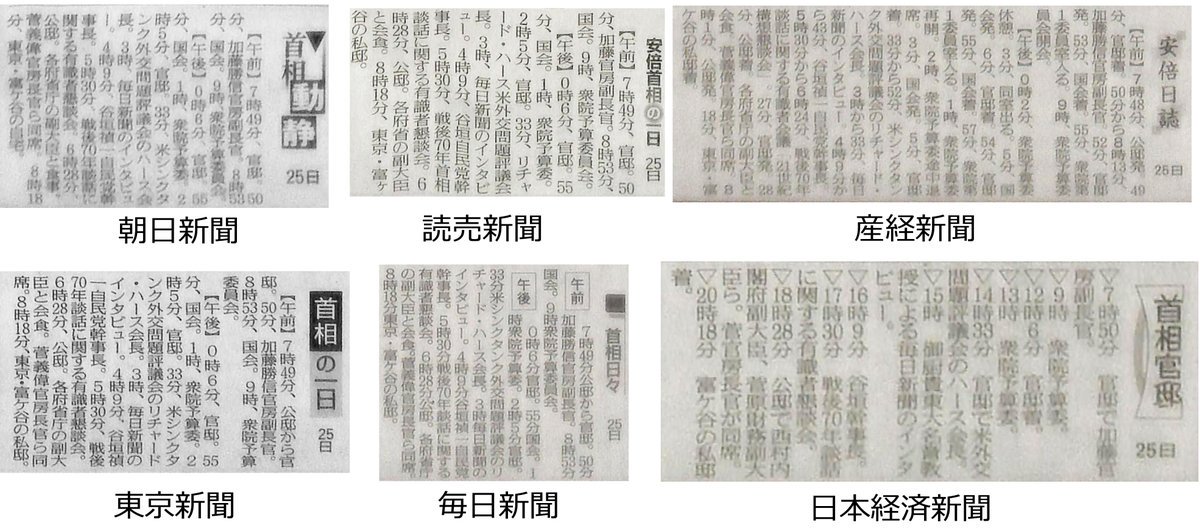 首相動静
25日
【午前】7時49分、官邸。50
分、加藤勝信官房副長官。8時53
分、国会。9時、衆院予算委員会。
【午後】0時6分、官邸。55
分、国会。1時、衆院予算委。
2時5分、官邸。33分、米シン
ク外交問題評議会のハース会
長。3時、毎日新聞のインタビ
ュー。4時9分、谷垣禎一自民党幹
事長。5時30分、戦後70年談話に
関する有識者懇談会。6時28分、
公邸。各府省庁の副大臣と食事。
菅義偉官房長官ら同席。8時18
分、東京・富ケ谷の自宅。
朝日新聞
安倍首相の一日
25日
【午前】7時49分、官邸。50
分、加藤官房副長官。8時53分、
国会。9時、衆院予算委。
【午後】0時6分、官邸。55
分、国会。1時、衆院予算委。
2時5分、官邸。33分、リチャ
ード・ハース米外交問題評議会
長。3時、毎日新聞のインタビ
ュー。4時9分、谷垣自民党幹
事長。5時30分、戦後70年首相
談話に関する有識者懇談会。6
時28分、公邸。各府省の副大臣
と会食。8時18分、東京・富ケ
谷の私邸。
読売新聞
安倍日誌
25日
【午前】7時48分、公邸発。49
分、官邸着。50分から8時13分、
加藤勝信官房副長官。52分、官邸
発。53分、国会着。55分、衆院第
1委員室入る。9時、衆院予算委
員会開会。
【午後】0時2分、衆院予算委
休憩。3分、同室出る。5分、国
会発。6分、官邸着。54分、官邸
発。55分、国会着。57分、衆院第
1委員室入る。1時、衆院予算委
再開。
産経新聞
首相の一日
25日
【午前】7時49分、公邸から官
邸。50分、加藤勝信官房副長官。
8時53分、国会。9時、衆院予算
委員会。
【午後】0時6分、官邸。55
分、国会。1時、衆院予算委。2
時5分、官邸。33分、米シンクタ
ンク外交問題評議会のリチャード
・ハース会長。3時、毎日新聞の
インタビュー。4時9分、谷垣禎
一自民党幹事長。5時30分、戦後
70年談話に関する有識者懇談会。
6時28分、公邸。各府省庁の副大
臣と会食。菅義偉官房長官ら同
席。8時18分、東京・富ケ谷の私邸。
東京新聞
首相日々
25日
午前
7時49分公邸から官邸。50分
加藤勝信官房副長官。8時53分
国会。9時衆院予算委員会。
午後
0時6分官邸。55分国会。1
時衆院予算委。2時5分官邸。
33分米シンクタンク外交問題評議会のリ
チャード・ハース会長。3時毎日新聞の
インタビュー。4時9分谷垣禎一自民党
幹事長。5時30分戦後70年談話に関する
有識者懇談会。6時28分公邸。各府省庁
の副大臣と会食。菅義偉官房長官ら同席。
8時18分東京・富ケ谷の私邸。
毎日新聞
首相官邸
25日
▽7時50分 官邸で加藤官
房副長官。
▽9時 衆院予算委。
▽12時6分 官邸。
▽13時 衆院予算委。
▽14時33分 官邸で米外交
問題評議会のハース会長。
▽15時 御厨貴東大名誉教
授による毎日新聞のインタ
ビュー。
▽16時9分 谷垣幹事長。
▽17時30分 戦後70年談話
に関する有識者懇談会。
▽18時28分 公邸で西村内
閣府副大臣、菅原財務副大
臣ら。菅官房長官が同席。
▽20時18分 富ケ谷の私邸
着。
日本経済新聞